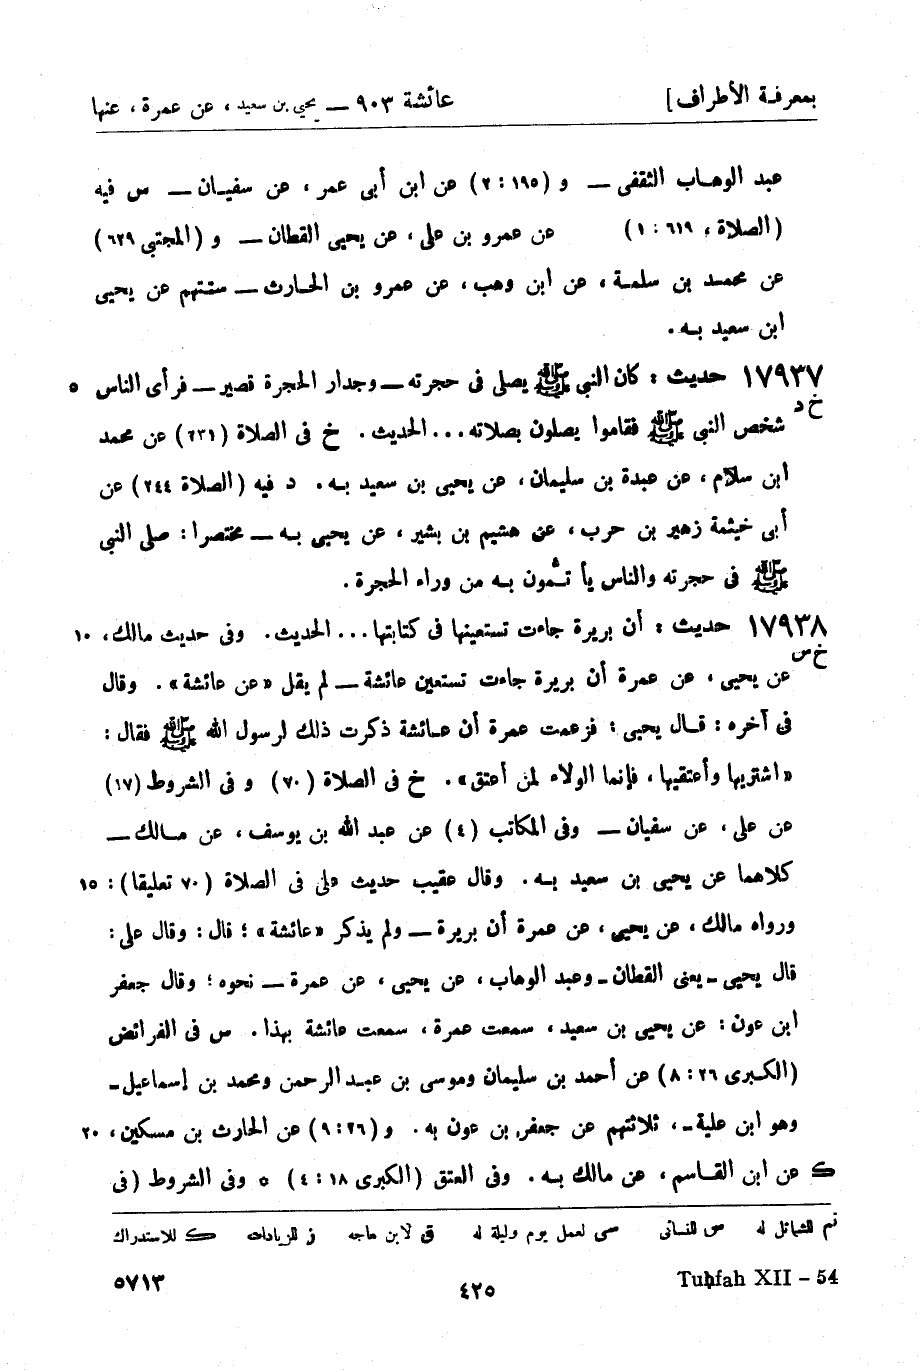 بمعرفة الأطراف] عائشة ٩٠٣ — يحيى بن سعيد ، عن عمرة ، عنها
عبد الوهاب الثقفى — و (١٩٥ : ٢) عن ابن أبى عمر ، عن سفيان — س فيه
(الصلاة ، ٦١٩ : ١) عن عمرو بن على ، عن يحيى القطان — و (المجتبى ٦٢٩)
عن محمد بن سلمة ، عن ابن وهب ، عن عمرو بن الحارث — ستتهم عن يحيى
ابن سعيد به .
١٧٩٣٧ حديث : كان النبى ﷺ يصلى فى حجرته — وجدار الحجرة قصير — فرأى الناس ٥
خ د
شخص النبى ﷺ فقاموا يصلون بصلاته ... الحديث . خ فى الصلاة (٢٣١) عن محمد
ابن سلام ، عن عبدة بن سليمان ، عن يحيى بن سعيد به . د فيه (الصلاة ٢٤٤) عن
أبى خيثمة زهير بن حرب ، عن هشيم بن بشير ، عن يحيى به — مختصرا : صلى النبى
ﷺ فى حجرته والناس يأتمُّون به من وراء الحجرة .
١٧٩٣٨ حديث : أن بريرة جاءت تستعينها فى كتابتها ... الحديث . وفى حديث مالك ، ١٠
خ س
عن يحيى ، عن عمرة أن بريرة جاءت تستعين عائشة — لم يقل «عن عائشة» . وقال
فى آخره : قال يحيى : فزعمت عمرة أن عائشة ذكرت ذلك لرسول الله ﷺ فقال :
«اشتريها وأعتقيها ، فإنما الولاء لمن أعتق» . خ فى الصلاة (٧٠) و فى الشروط (١٧)
عن على ، عن سفيان — وفى المكاتب (٤) عن عبد الله بن يوسف ، عن مالك —
كلاهما عن يحيى بن سعيد به . وقال عقيب حديث على فى الصلاة (٧٠ تعليقا) : ١٥
ورواه مالك ، عن يحيى ، عن عمرة أن بريرة — ولم يذكر «عائشة» ؛ قال : وقال على :
قال يحيى - يعنى القطان - وعبد الوهاب ، عن يحيى ، عن عمرة — نحوه ؛ وقال جعفر
ابن عون : عن يحيى بن سعيد ، سمعت عمرة ، سمعت عائشة بهذا . س فى الفرائض
(الكبرى ٢٦ : ٨) عن أحمد بن سليمان وموسى بن عبد الرحمن ومحمد بن إسماعيل -
وهو ابن علية - ، ثلاثتهم عن جعفر بن عون به . و (٢٦ : ٩) عن الحارث بن مسكين ، ٢٠
ك عن ابن القاسم ، عن مالك به . وفى العتق (الكبرى ١٨ : ٤) ٥ وفى الشروط (فى
تم للشمائل له س للنسائى سى لعمل يوم وليلة له ق لابن ماجه ز للزيادات ك للاستدراك
Tuḥfah XII – 54 ٤٢٥ ٥٧١٣